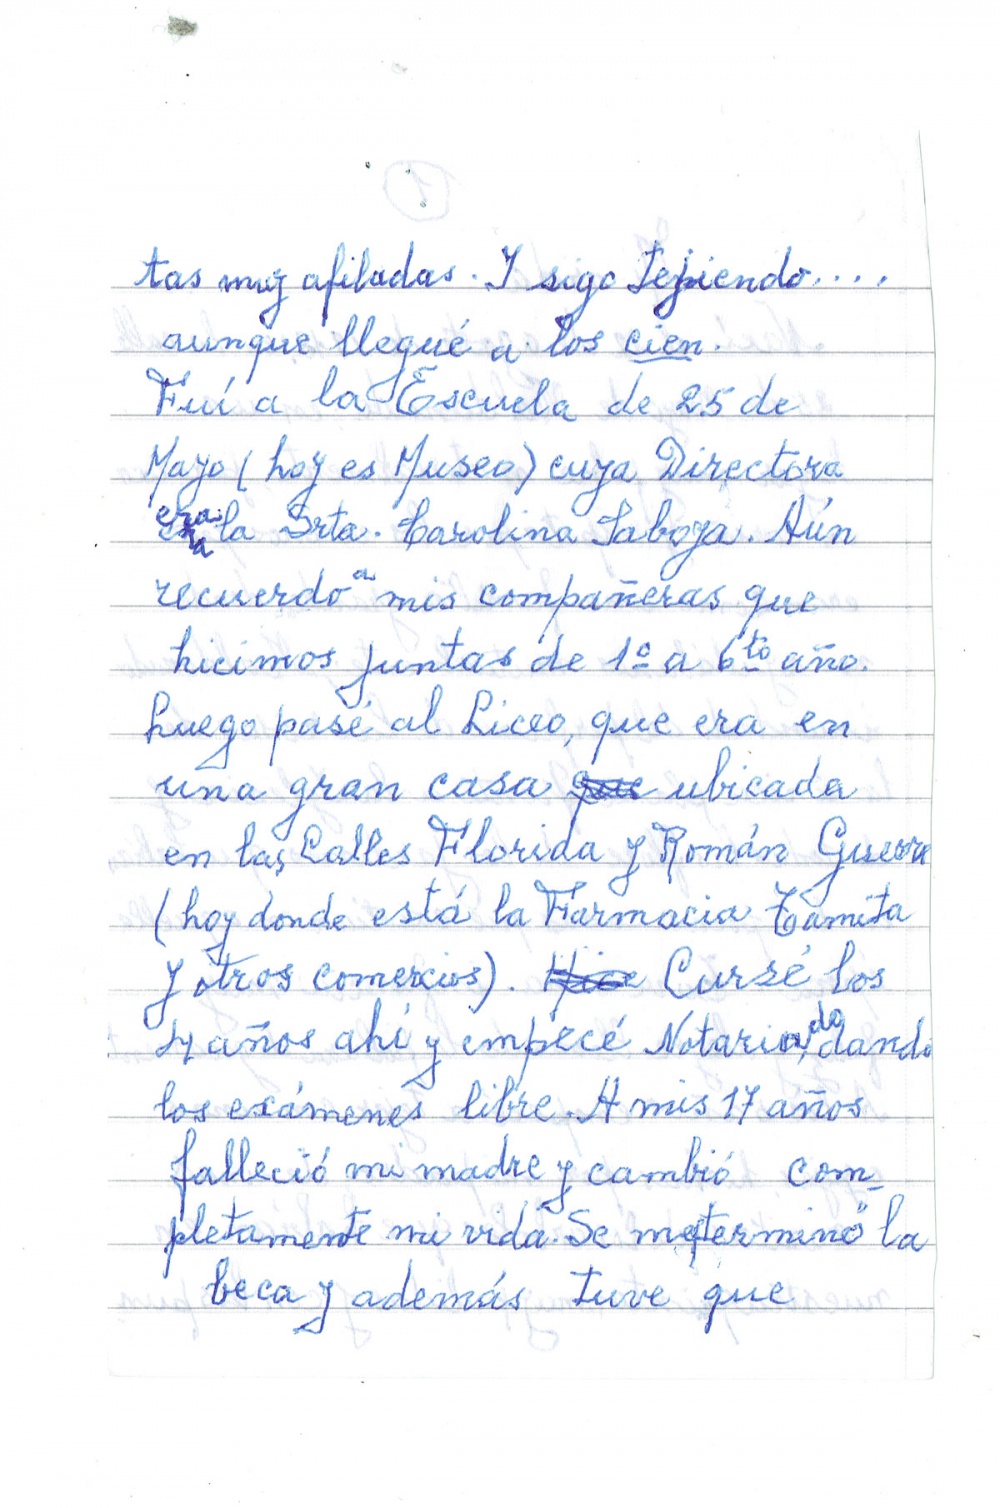 tas muy afiladas. Y sigo tejiendo....
aunque llegué a los cien.
Fuí a la Escuela de 25 de
Mayo (hoy es Museo) cuya Directora
era la Srta. Carolina Taboza. Aún
recuerdo a mis compañeras que
hicimos juntas de 1º a 6to año.
Luego pasé al Liceo, que era en
una gran casa que ubicada
en las Calles Florida y Román Guerra
(hoy donde está la Farmacia Camita
y otros comercios). Hice Cursé los
4 años ahí y empecé Notariado, dando
los exámenes libre. A mis 17 años
falleció mi madre y cambió com-
pletamente mi vida. Se me terminó la
beca y además tuve que